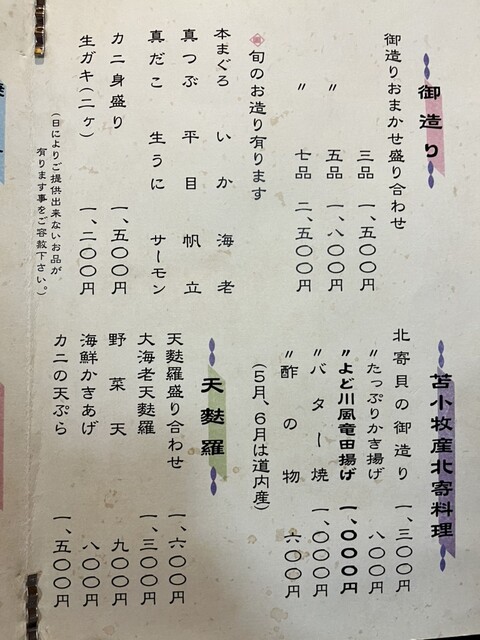 御造り
御造りおまかせ盛り合わせ
三品 一、五〇〇円
〃 五品 一、八〇〇円
〃 七品 二、五〇〇円
旬のお造り有ります
本まぐろ いか 海老
真つぶ 平目 帆立
真だこ 生うに サーモン
カニ身盛り 一、五〇〇円
生ガキ(二ヶ) 一、二〇〇円
(日によりご提供出来ないお品が
有ります事をご容赦下さい。)
苫小牧産北寄料理
北寄貝の御造り 一、三〇〇円
〃たっぷりかき揚げ 八〇〇円
〃よど川風竜田揚げ 一、〇〇〇円
〃バター焼 一、〇〇〇円
〃酢の物 六〇〇円
(5月、6月は道内産)
天麩羅
天麩羅盛り合わせ 一、六〇〇円
大海老天麩羅 一、三〇〇円
野菜天 九〇〇円
海鮮かきあげ 八〇〇円
カニの天ぷら 一、五〇〇円